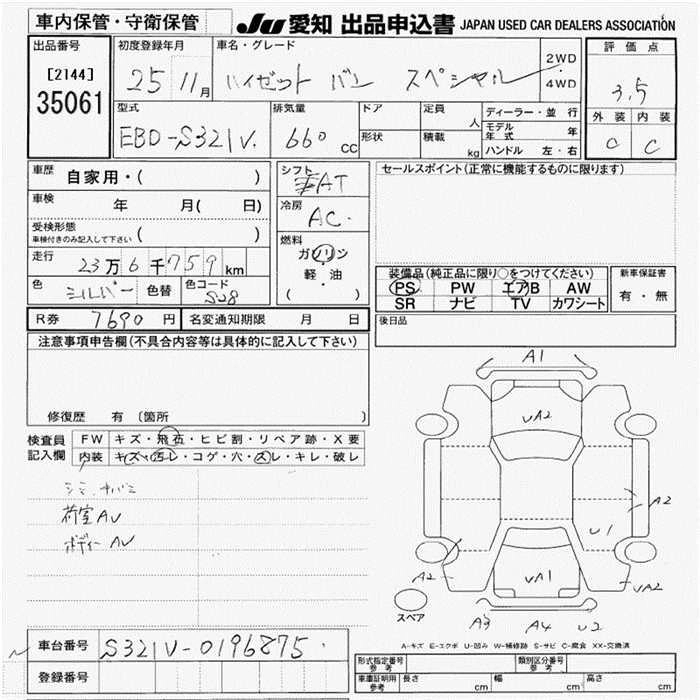 車内保管・守衛保管
JU 愛知 出品申込書 JAPAN USED CAR DEALERS ASSOCIATION
出品番号
[2144]
35061
初度登録年月
25 11月
車名・グレード
ハイゼット バン スペシャル
2WD
・
4WD
評価点
3.5
外装 内装
C C
型式
EBD-S321V
排気量
660 cc
ドア
形状
定員 人
積載 kg
ディーラー・並行
モデル年式 年
ハンドル 左・右
車歴 自家用・( )
車検 年 月( 日)
受検形態
車検付きのみ記入して下さい ( )
走行 23万6千759km
色 シルバー 色替 色コード S28
シフト
AT
冷房
AC
燃料
ガソリン
・
軽・油
( )
セールスポイント(正常に機能するものに限ります)
装備品(純正品に限り○をつけてください)
PS PW エアB AW
SR ナビ TV カワシート
新車保証書
有・無
R券 7690円 名変通知期限 月 日
後日品
注意事項申告欄(不具合内容等は具体的に記入して下さい)
修復歴 有 〔箇所
検査員記入欄
FW キズ・飛石・ヒビ割・リペア跡・X要
内装 キズ・汚レ・コゲ・穴・スレ・キレ・破レ
荷室AU
ボディーAU
A1
UA2
A2
U1
UA1
A2
UA2
スペア
A3 A4 U2
A-キズ E-エクボ U-凹み W-補修跡 S-サビ C-腐食 XX-交換済
車台番号 S321V-0196875
登録番号
形式指定番号 参考
類別区分番号 参考
車庫証明用 参考 長さ cm 幅 cm 高さ cm